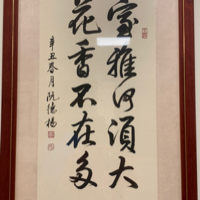 室雅何須大
花香不在多
辛丑春月阮德楊